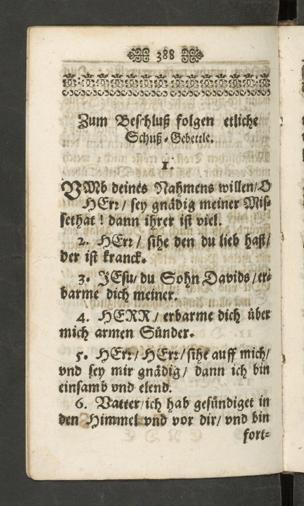 388
Zum Beschluß folgen etliche
Schuß-Gebettle.
1.
VMb deines Nahmens willen/ O
HErr/ sey gnädig meiner Mis-
sethat! dann ihrer ist viel.
2. HErr/ sihe den du lieb hast/
der ist kranck.
3. JEsu/ du Sohn Davids/ er-
barme dich meiner.
4. HERR/ erbarme dich über
mich armen Sünder.
5. HErr/ HErr/ sihe auff mich/
vnd sey mir gnädig/ dann ich bin
einsamb vnd elend.
6. Vatter/ ich hab gesündiget in
den Himmel vnd vor dir/ vnd bin
fort-